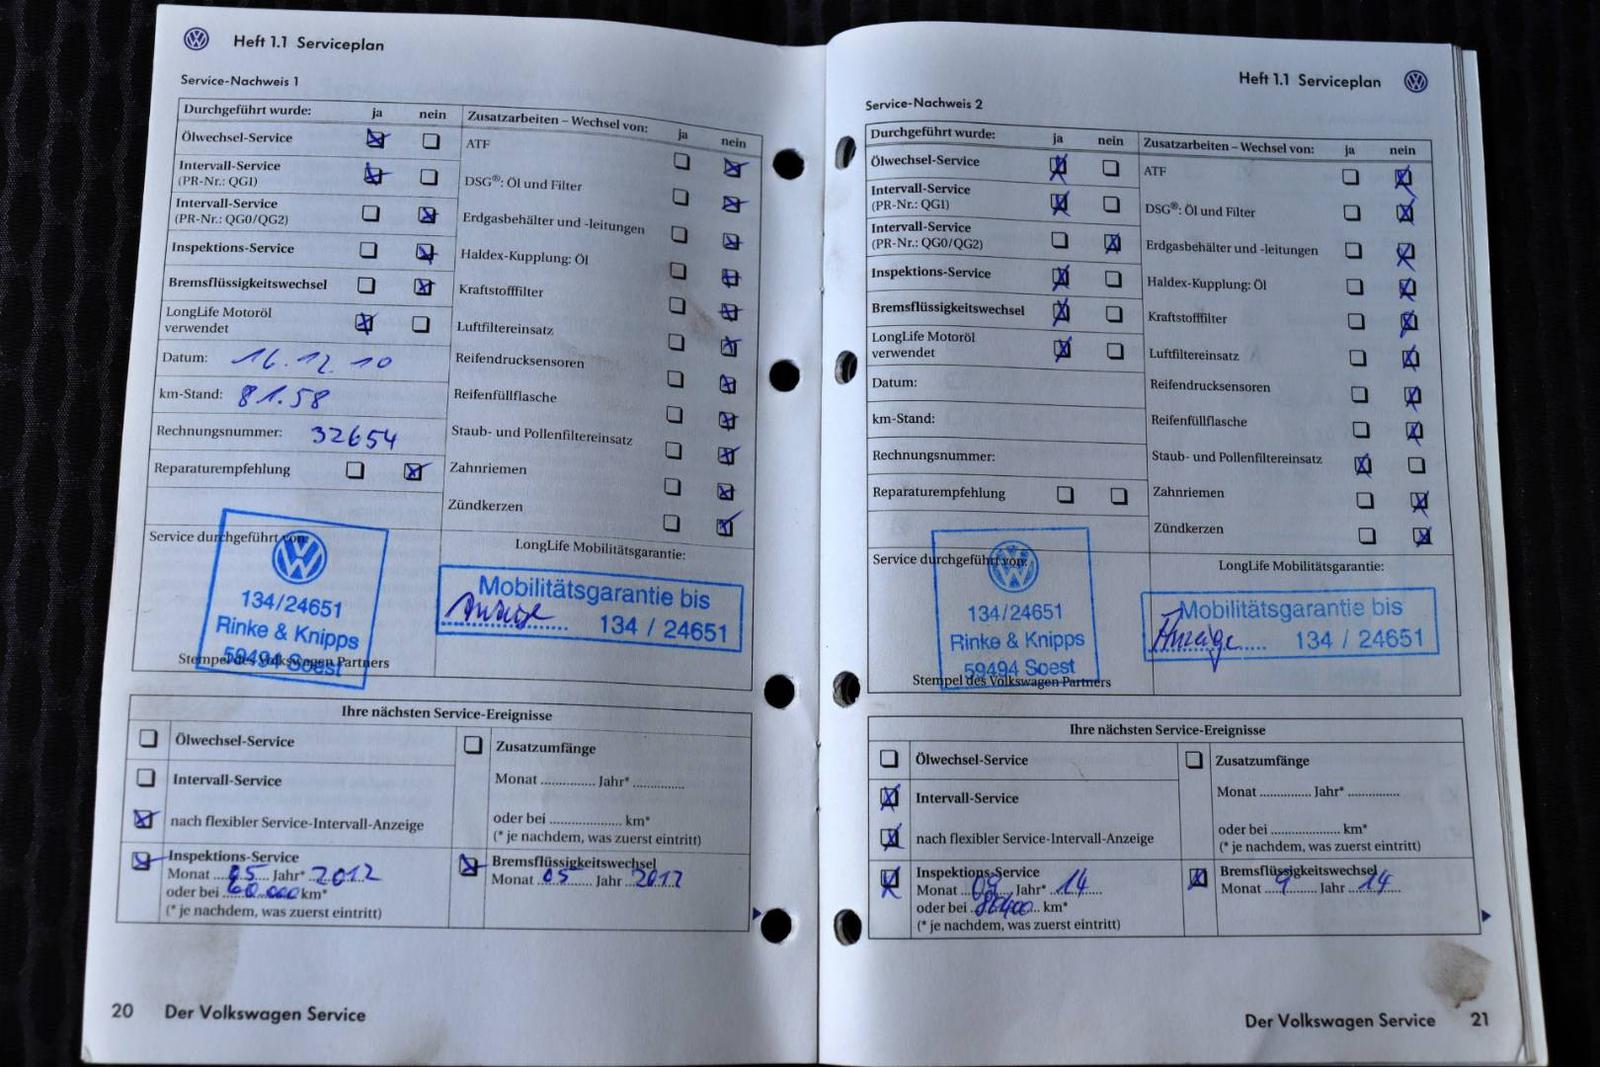 Heft 1.1 Serviceplan
Service-Nachweis 1
Durchgeführt wurde: ja nein
Ölwechsel-Service
Intervall-Service
(PR-Nr.: QG1)
Intervall-Service
(PR-Nr.: QG0/QG2)
Inspektions-Service
Bremsflüssigkeitswechsel
LongLife Motoröl
verwendet
Datum: 16.12.10
km-Stand: 81.58
Rechnungsnummer: 32654
Reparaturempfehlung
Zusatzarbeiten – Wechsel von: ja nein
ATF
DSG®: Öl und Filter
Erdgasbehälter und -leitungen
Haldex-Kupplung: Öl
Kraftstofffilter
Luftfiltereinsatz
Reifendrucksensoren
Reifenfüllflasche
Staub- und Pollenfiltereinsatz
Zahnriemen
Zündkerzen
Service durchgeführt von:
134/24651
Rinke & Knipps
59494 Soest
Stempel des Volkswagen Partners
LongLife Mobilitätsgarantie:
Mobilitätsgarantie bis
Anzeige 134 / 24651
Ihre nächsten Service-Ereignisse
Ölwechsel-Service
Intervall-Service
nach flexibler Service-Intervall-Anzeige
Inspektions-Service
Monat 05 Jahr* 2012
oder bei 60.000 km*
(* je nachdem, was zuerst eintritt)
Zusatzumfänge
Monat .............. Jahr* ...............
oder bei .................... km*
(* je nachdem, was zuerst eintritt)
Bremsflüssigkeitswechsel
Monat 05 Jahr 2012
20 Der Volkswagen Service
Heft 1.1 Serviceplan
Service-Nachweis 2
Durchgeführt wurde: ja nein
Ölwechsel-Service
Intervall-Service
(PR-Nr.: QG1)
Intervall-Service
(PR-Nr.: QG0/QG2)
Inspektions-Service
Bremsflüssigkeitswechsel
LongLife Motoröl
verwendet
Datum:
km-Stand:
Rechnungsnummer:
Reparaturempfehlung
Zusatzarbeiten – Wechsel von: ja nein
ATF
DSG®: Öl und Filter
Erdgasbehälter und -leitungen
Haldex-Kupplung: Öl
Kraftstofffilter
Luftfiltereinsatz
Reifendrucksensoren
Reifenfüllflasche
Staub- und Pollenfiltereinsatz
Zahnriemen
Zündkerzen
Service durchgeführt von:
134/24651
Rinke & Knipps
59494 Soest
Stempel des Volkswagen Partners
LongLife Mobilitätsgarantie:
Mobilitätsgarantie bis
Anzeige 134 / 24651
Ihre nächsten Service-Ereignisse
Ölwechsel-Service
Intervall-Service
nach flexibler Service-Intervall-Anzeige
Inspektions-Service
Monat 09 Jahr* 14
oder bei km*
(* je nachdem, was zuerst eintritt)
Zusatzumfänge
Monat .............. Jahr* ...............
oder bei .................... km*
(* je nachdem, was zuerst eintritt)
Bremsflüssigkeitswechsel
Monat 9 Jahr 14
Der Volkswagen Service 21